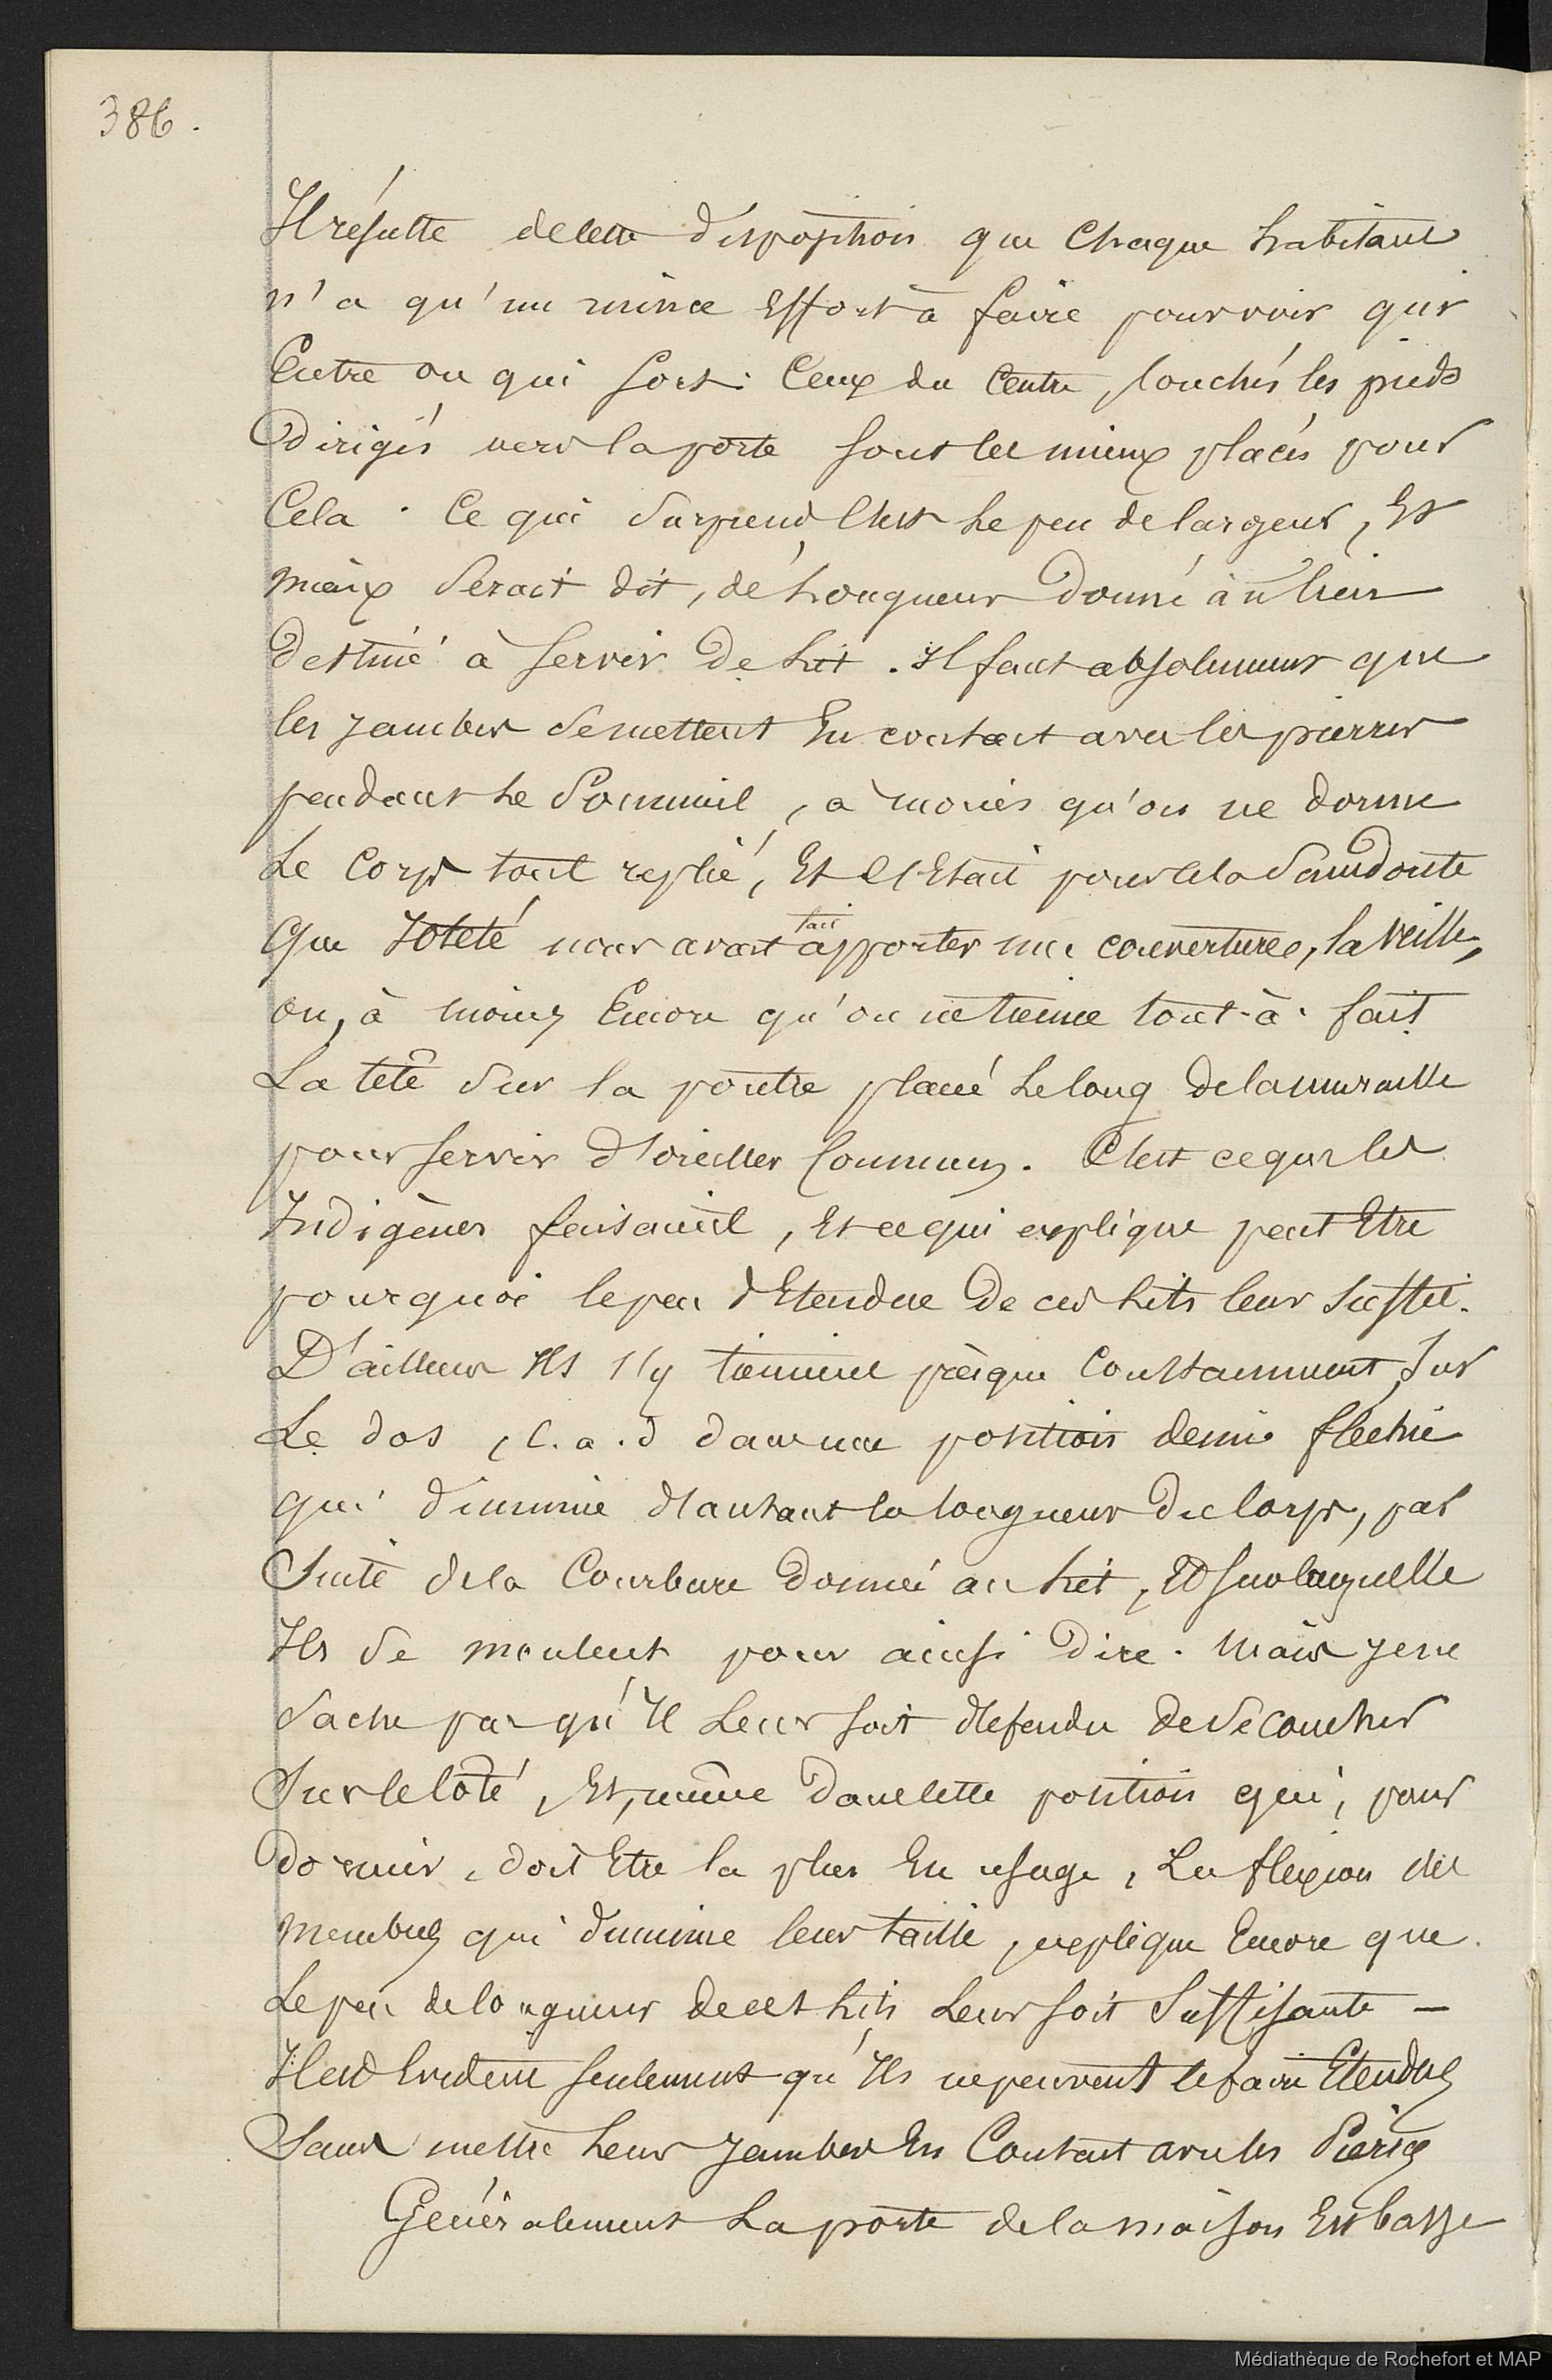 386.
Il résulte de cette disposition que chaque habitant
n'a qu'un mince Effort à faire pour voir qui
Entre ou qui sort. Ceux du Centre, couchés les pieds
Dirigés vers la porte sont les mieux placés pour
Cela. Ce qui surprend c'est le peu de largeur, Et
mieux serait dit, de longueur donné à un lieu
destiné à servir de lit. Il faut absolument que
les jambes se mettent En contact avec les pierres
pendant le sommeil, à moins qu'on ne dorme
Le corps tout replié, Et c'Etait pour cela sans doute
Que Totété nous avait fait apporter une couverture, la veille,
ou, à moins Encore qu'on ne tienne tout-à-fait
La tête sur la poutre placée le long de la muraille
pour servir d'oreiller commun. C'est ce que les
Indigènes faisaient, Et ce qui explique peut Etre
pourquoi le peu d'Etendue de ces lits leur suffit.
D'ailleurs Ils s'y tiennent presque constamment sur
Le dos, c.a.d dans une position demi flechie
qui diminue d'autant la longueur du corps, par
Suite de la Courbure donnée au lit, Et sur laquelle
Ils se moulent pour ainsi dire. Mais je ne
sache pas qu'Il Leur soit défendu de se coucher
Sur le côté, Et, même dans cette position qui, pour
dormir, doit Etre la plus En usage, La flexion des
membres qui diminue leur taille, explique Encore que
Le peu de longueur de ces lits Leur soit suffisante —
Il est Evident seulement qu'Ils ne peuvent le faire Etendus
Sans mettre Leurs jambes En Contact avec les Pierres
Généralement La porte de la maison Est basse
Médiathèque de Rochefort et MAP